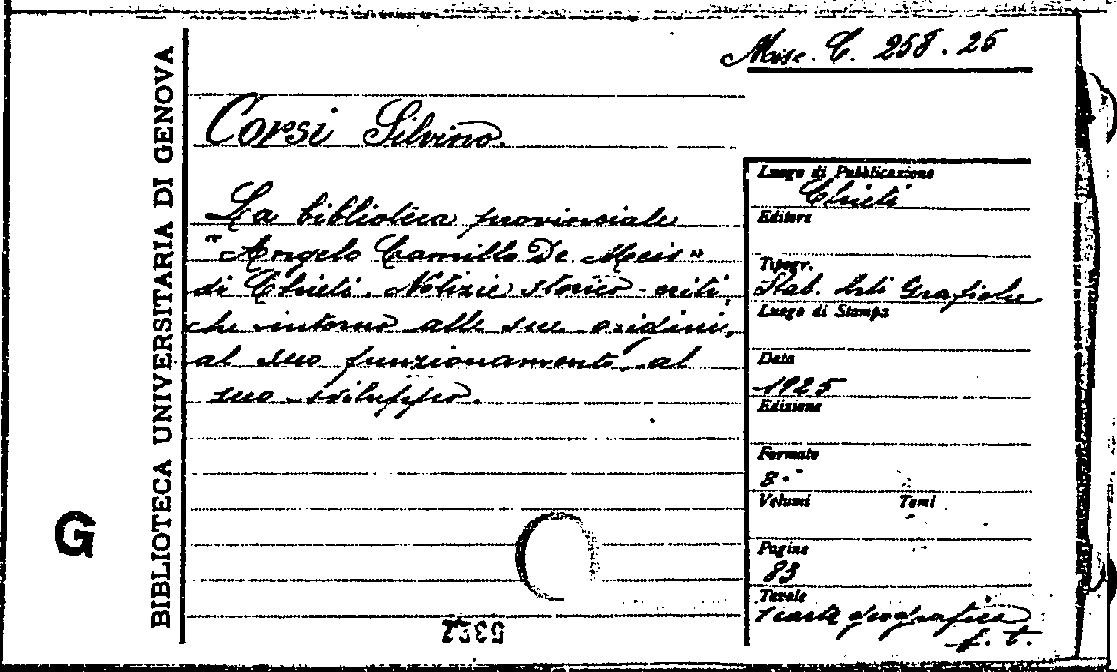 Misc. C. 258. 25
BIBLIOTECA UNIVERSITARIA DI GENOVA
G
Corsi Silvino.
La biblioteca provinciale
"Angelo Camillo De Meis"
di Chieti. Notizie storico-criti
che intorno alle sue origini,
al suo funzionamento, al
suo sviluppo.
Luogo di Pubblicazione
Chieti
Editore
Tipogr.
Stab. Arti Grafiche
Luogo di Stampa
Data
1925
Edizione
Formato
8°
Volumi Tomi
Pagine
83
Tavole
1 carta geografica
f. t.